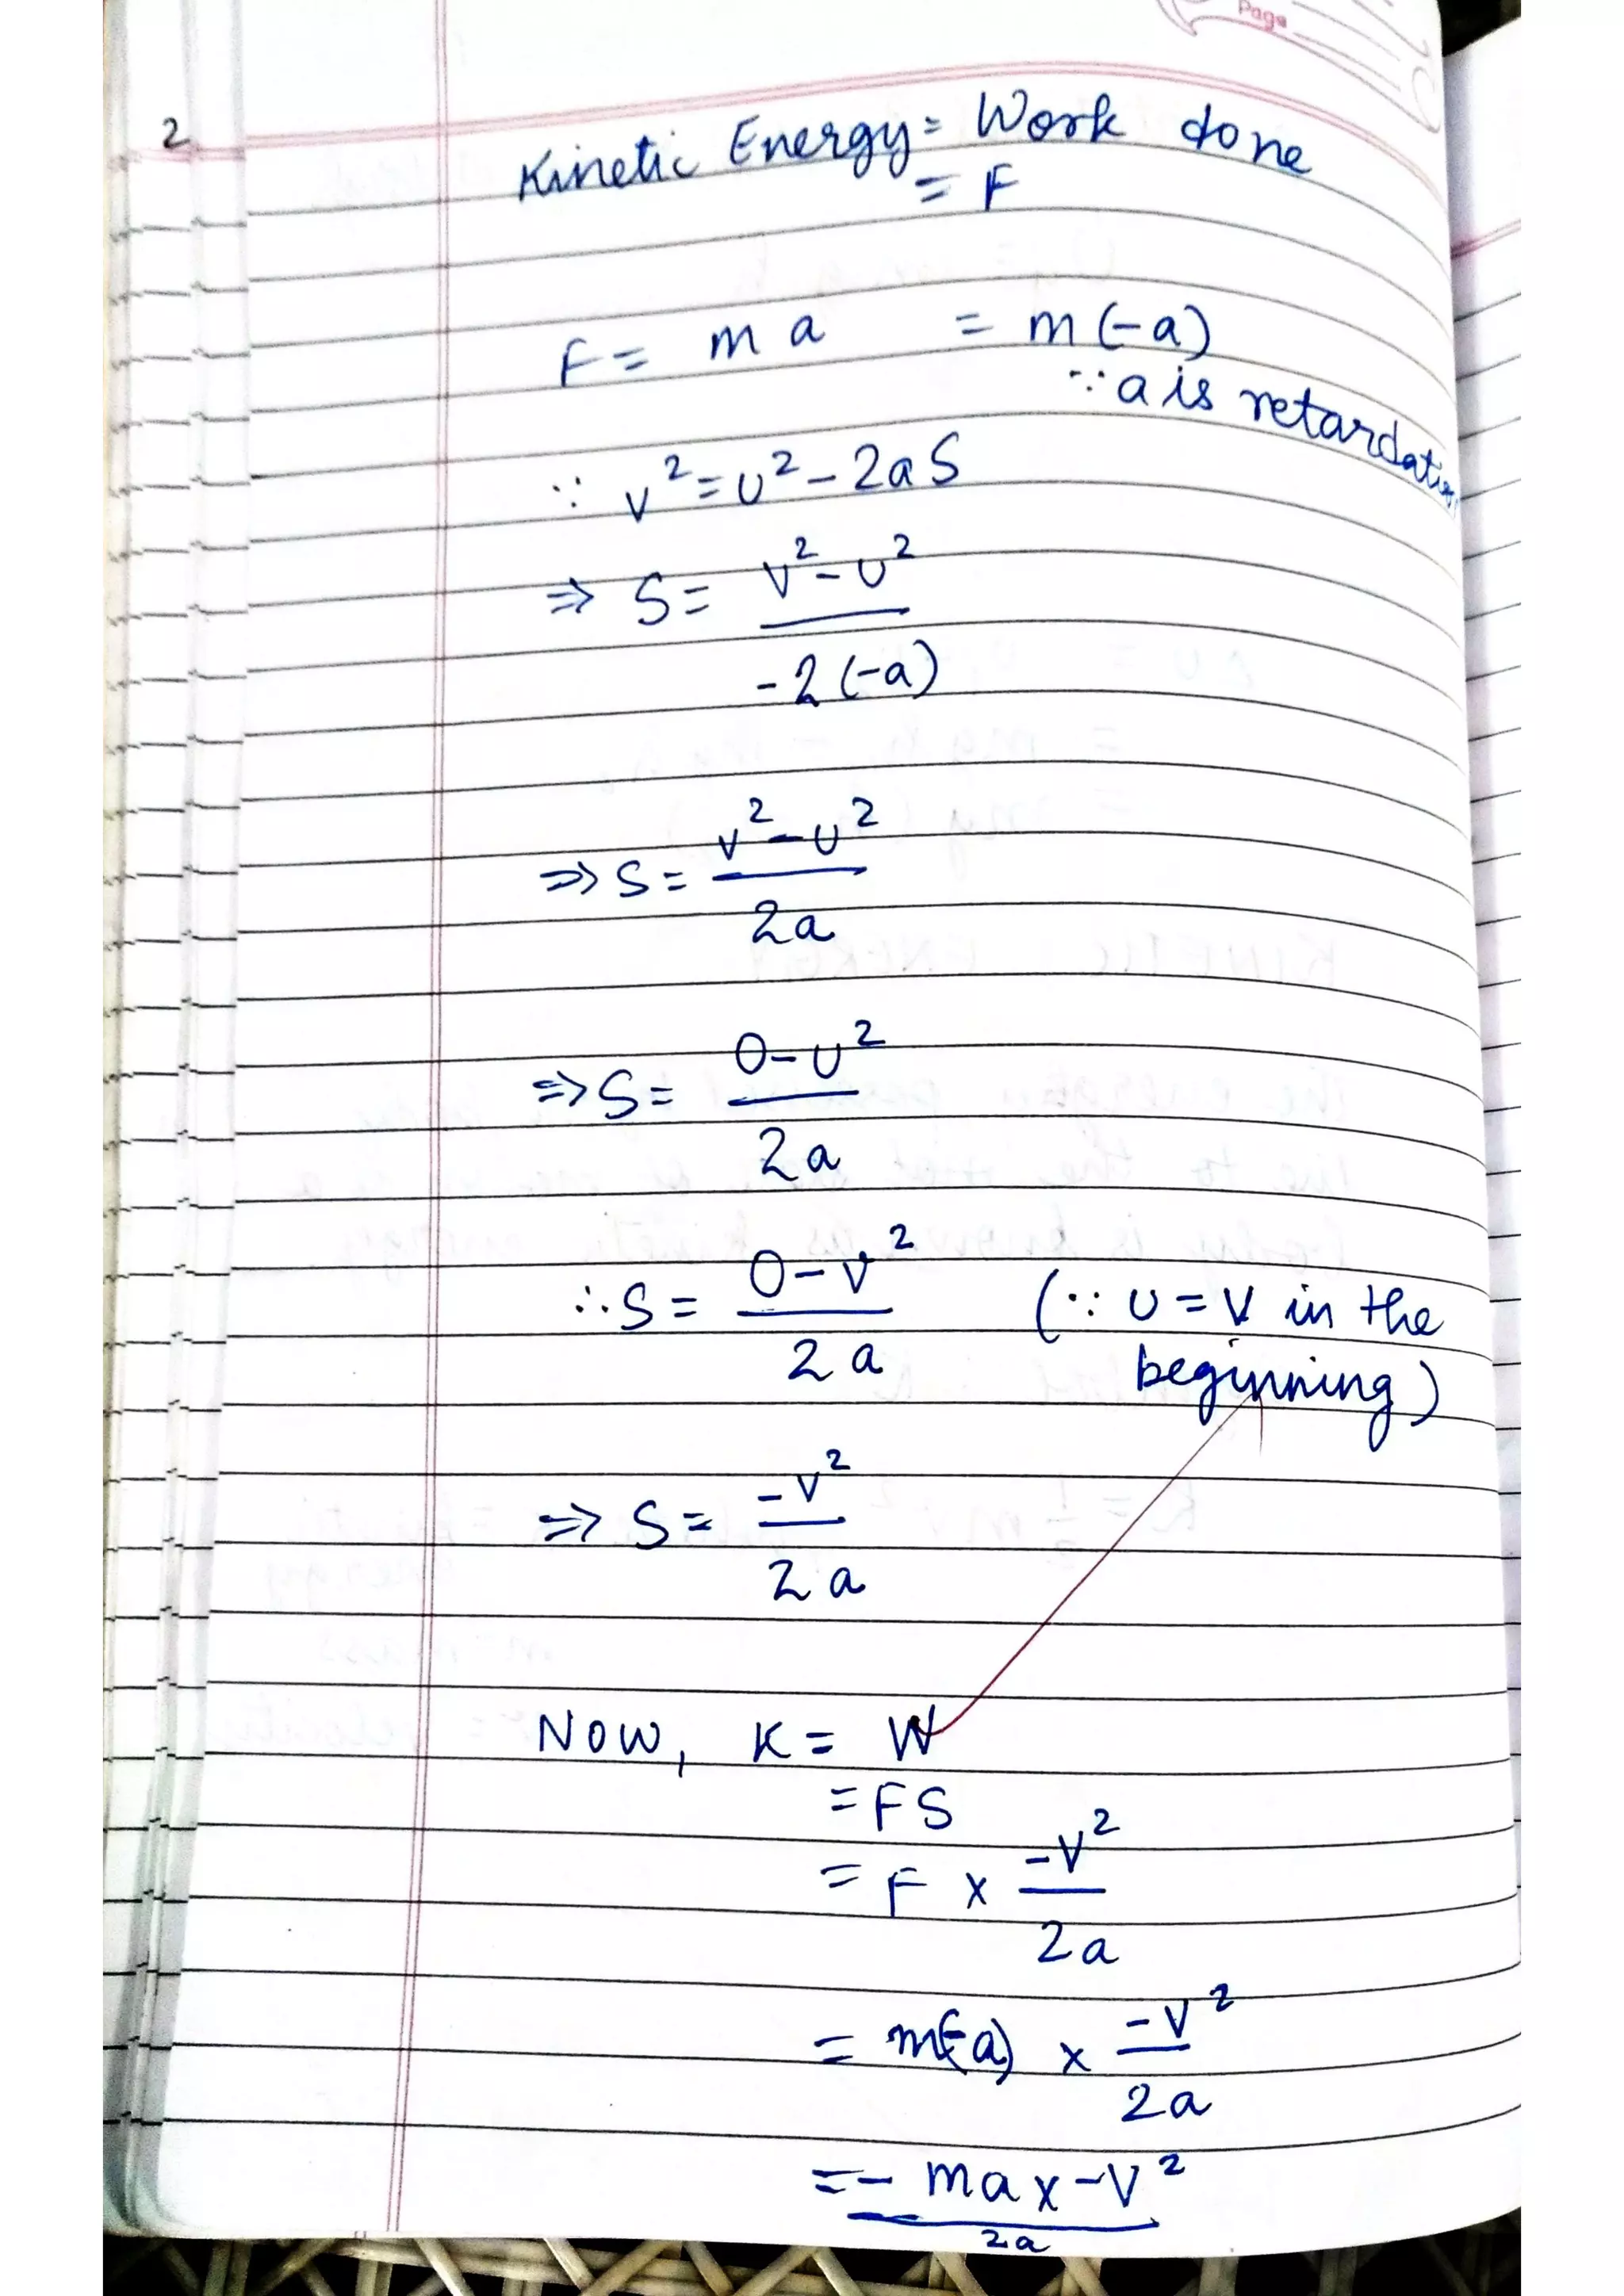 Page
2
Kinetic Energy = Work done
= F
F = ma = m(-a)
∵ a is retardation
∵ v² = u² - 2aS
⇒ S = v² - u² / -2(-a)
⇒ S = v² - u² / 2a
⇒ S = 0 - u² / 2a
∴ S = 0 - v² / 2a (∵ u = v in the
beginning)
⇒ S = -v² / 2a
Now, K = W
= FS
= F × -v² / 2a
= m(-a) × -v² / 2a
= - ma × -v² / 2a